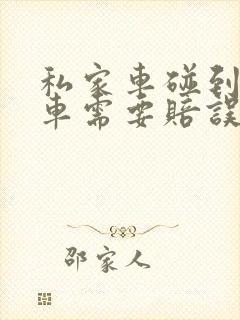 私家車碰到
車需要賠誤
邵家人